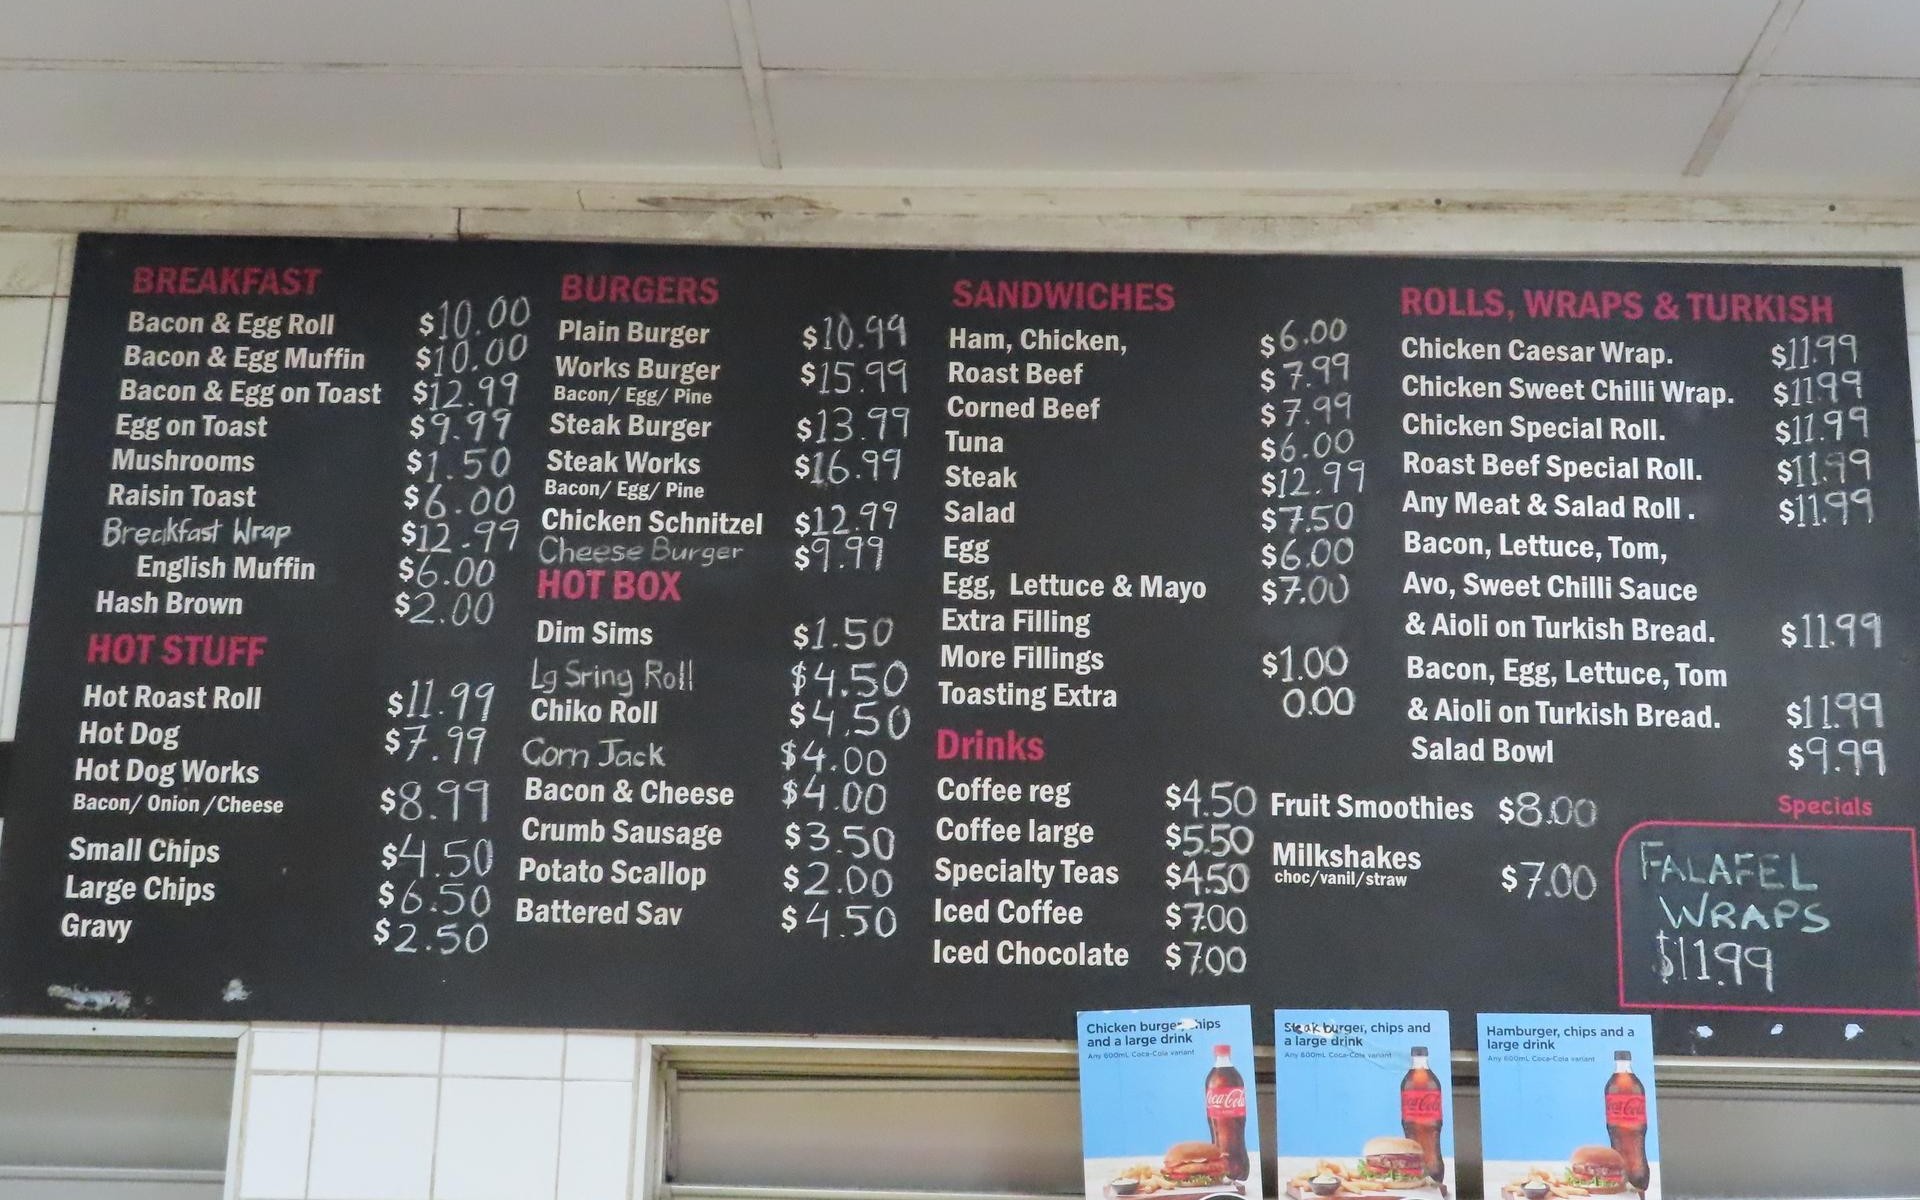 BREAKFAST
Bacon & Egg Roll $10.00
Bacon & Egg Muffin $10.00
Bacon & Egg on Toast $12.99
Egg on Toast $9.99
Mushrooms $1.50
Raisin Toast $6.00
Breakfast Wrap $12.99
English Muffin $6.00
Hash Brown $2.00
HOT STUFF
Hot Roast Roll $11.99
Hot Dog $7.99
Hot Dog Works
Bacon/ Onion /Cheese $8.99
Small Chips $4.50
Large Chips $6.50
Gravy $2.50
BURGERS
Plain Burger $10.99
Works Burger $15.99
Bacon/ Egg/ Pine
Steak Burger $13.99
Steak Works $16.99
Bacon/ Egg/ Pine
Chicken Schnitzel $12.99
Cheese Burger $9.99
HOT BOX
Dim Sims $1.50
Lg Sring Roll $4.50
Chiko Roll $4.50
Corn Jack $4.00
Bacon & Cheese $4.00
Crumb Sausage $3.50
Potato Scallop $2.00
Battered Sav $4.50
SANDWICHES
Ham, Chicken, $6.00
Roast Beef $7.99
Corned Beef $7.99
Tuna $6.00
Steak $12.99
Salad $7.50
Egg $6.00
Egg, Lettuce & Mayo $7.00
Extra Filling
More Fillings $1.00
Toasting Extra 0.00
Drinks
Coffee reg $4.50
Coffee large $5.50
Specialty Teas $4.50
Iced Coffee $7.00
Iced Chocolate $7.00
Fruit Smoothies $8.00
Milkshakes
choc/vanil/straw $7.00
ROLLS, WRAPS & TURKISH
Chicken Caesar Wrap. $11.99
Chicken Sweet Chilli Wrap. $11.99
Chicken Special Roll. $11.99
Roast Beef Special Roll. $11.99
Any Meat & Salad Roll . $11.99
Bacon, Lettuce, Tom,
Avo, Sweet Chilli Sauce
& Aioli on Turkish Bread. $11.99
Bacon, Egg, Lettuce, Tom
& Aioli on Turkish Bread. $11.99
Salad Bowl $9.99
Specials
FALAFEL
WRAPS
$11.99
Chicken burger, chips
and a large drink
Any 600mL Coca-Cola variant
Coca-Cola
Steak burger, chips and
a large drink
Any 600mL Coca-Cola variant
Coca-Cola
Hamburger, chips and a
large drink
Any 600mL Coca-Cola variant
Coca-Cola